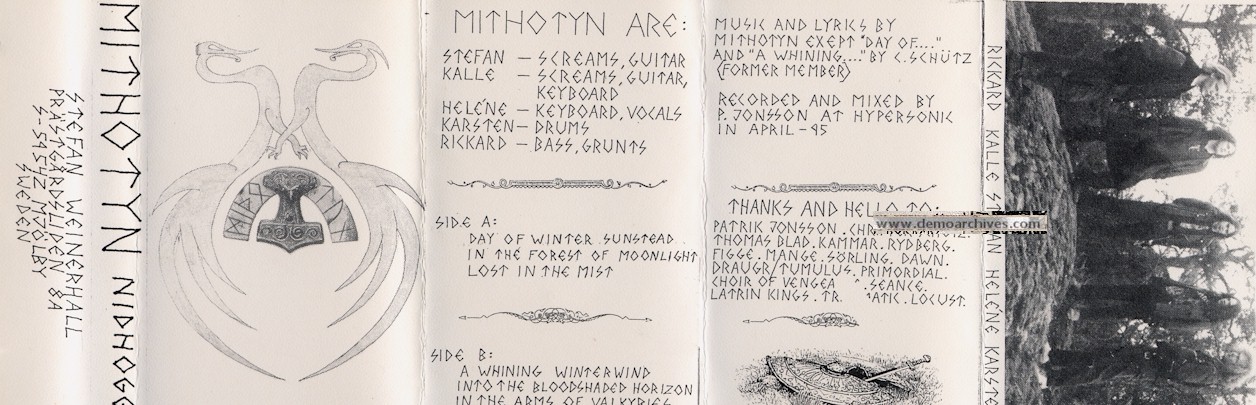 STEFAN WEINERHALL
PRÄSTGÅRDSLIDEN 8A
S-59542 MJÖLBY
SWEDEN
MITHOTYN NIDHOGG
MITHOTYN ARE:
STEFAN — SCREAMS, GUITAR
KALLE — SCREAMS, GUITAR,
KEYBOARD
HELÉNE — KEYBOARD, VOCALS
KARSTEN — DRUMS
RICKARD — BASS, GRUNTS
SIDE A:
DAY OF WINTER SUNSTEAD
IN THE FOREST OF MOONLIGHT
LOST IN THE MIST
SIDE B:
A WHINING WINTERWIND
INTO THE BLOODSHADED HORIZON
IN THE ARMS OF VALKYRIES
MUSIC AND LYRICS BY
MITHOTYN EXEPT "DAY OF...."
AND "A WHINING...." BY C. SCHÜTZ
(FORMER MEMBER)
RECORDED AND MIXED BY
P. JONSSON AT HYPERSONIC
IN APRIL -95
THANKS AND HELLO TO:
PATRIK JONSSON.
www.demoarchives.com
THOMAS BLAD. KAMMAR. RYDBERG.
FIGGE. MANGE. SÖRLING. DAWN.
DRAUGR/TUMULUS. PRIMORDIAL.
CHOIR OF SEANCE.
LATRIN KINGS. LOCUST.
RICKARD KALLE HELÉNE